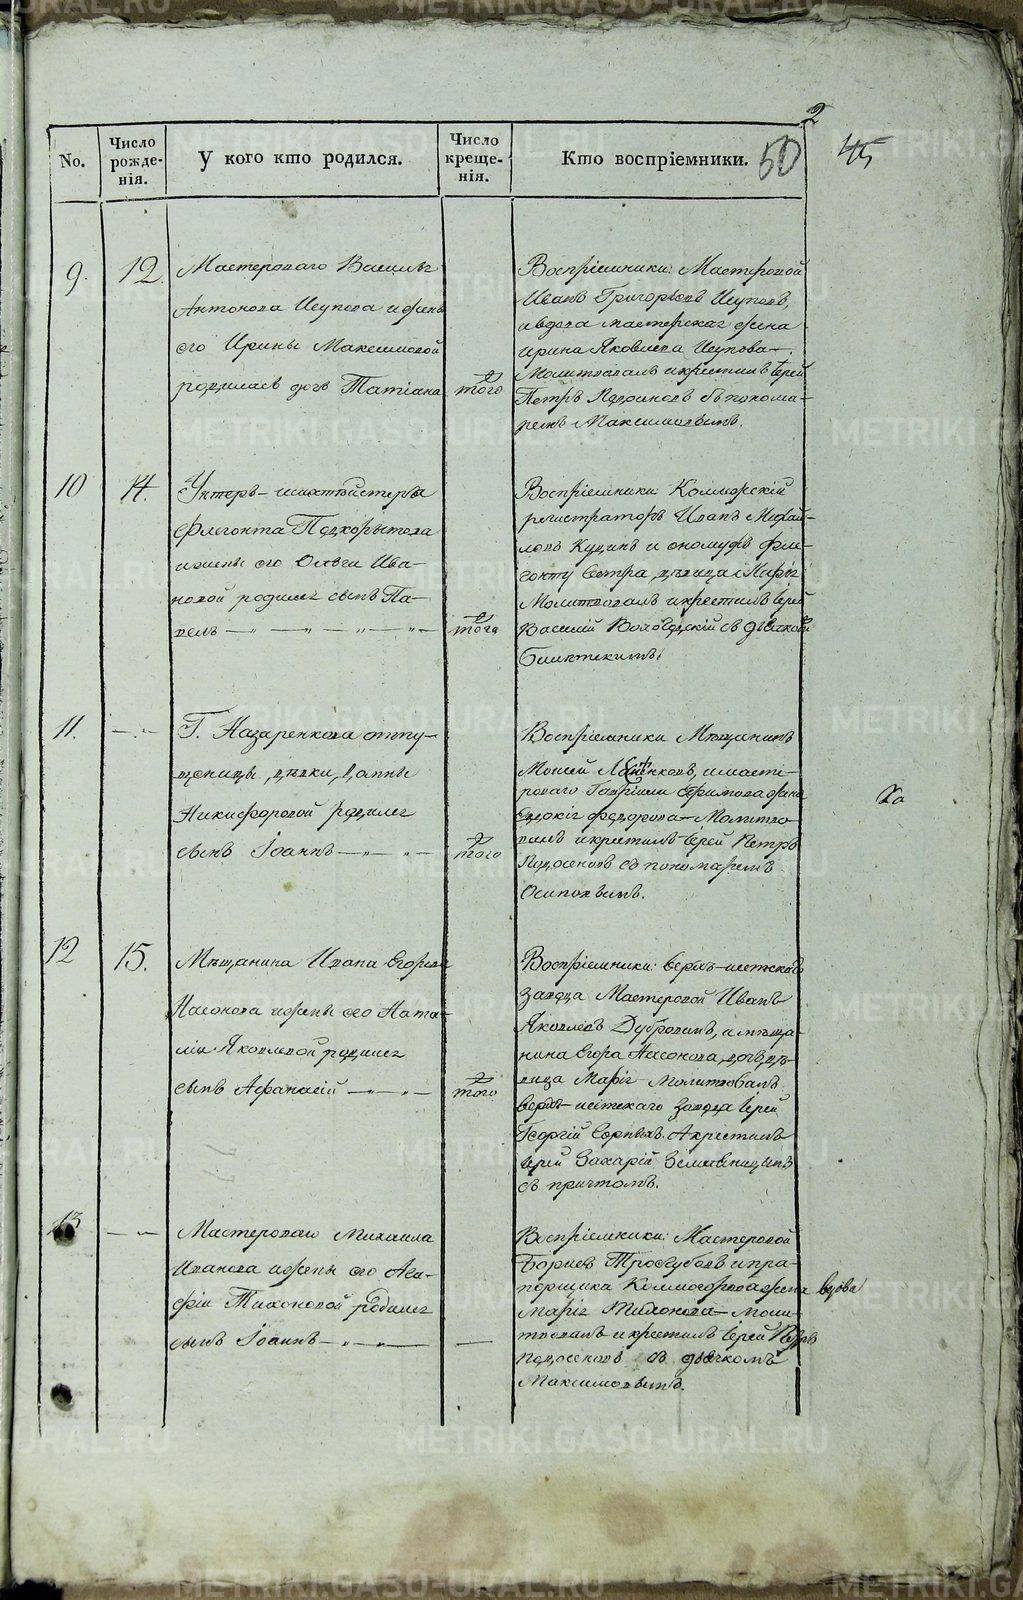 2
50
45
No.
Число рожде-нія.
У кого кто родился.
Число креще-нія.
Кто воспріемники.
9.
12.
Мастероваго Василья
Антонова Исупова и жены
его Ирины Максимовой
родилась дочь Татіана
того
Воспріемники: Мастеровой
Иванъ Григорьевъ Исуповъ,
и вдова мастерская жена
Ирина Яковлева Исупова.
Молитвовалъ и крестилъ Іерей
Петръ съ понома-
ремъ Максимовымъ.
10
14.
Унтеръ-шихтмейстера
Флегонта Подкорытова
и жены его Ольги Ива-
новой родился сынъ Па-
велъ
того
Воспріемники: Коллежскій
регистраторъ Иванъ Михай-
ловъ и онаго Фле-
гонту Сестра, дѣвица Марія
Молитвовалъ и крестилъ Іерей
Василій съ дьячкомъ
11.
Г. Назаренкова отпу-
щеницы, дѣвки, Анны
Никифоровой родился
сынъ Іоаннъ
того
Воспріемники Мѣщанинъ
Моисей и масте-
роваго Гавріила Ефимова жена
Евдокія Федорова Молитво-
валъ и крестилъ Іерей Петръ
съ пономаремъ
Осиповымъ.
12
15.
Мѣщанина Ивана Егорова
Насонова и жены его Ната-
ліи Яковлевой родился
сынъ Афанасій
того
Воспріемники: Верхъ-исетскаго
завода Мастеровой Иванъ
Яковлевъ Дубровинъ, и мѣща-
нина Егора Насонова, дочь, дѣ-
вица Марія Молитвовалъ
Верхъ-исетскаго завода Іерей
Георгій Сорныхъ. А крестилъ
Іерей Захарій
съ причтомъ.
13
Мастероваго Михаила
Иванова и жены его Ага-
фіи Тихоновой родился
сынъ Іоаннъ
Воспріемники: Мастеровой
Борисъ и пра-
порщика жена вдова
Марія Тихонова Моли-
твовалъ и крестилъ Іерей Петръ
съ дьячкомъ
Максимовымъ.
METRIKI.GASO-URAL.RU